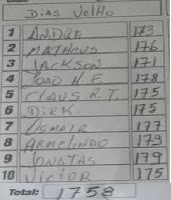 DIAS VELHO
1 ANDRE 173
2 MATHEUS 176
3 JACKSON 171
4 JOAO N.F. 178
5 CLAUS R.T. 175
6 DIRK 175
7 OSMAIR 177
8 ARMELINDO 179
9 JONATAS 179
10 VICTOR 175
Total: 1758